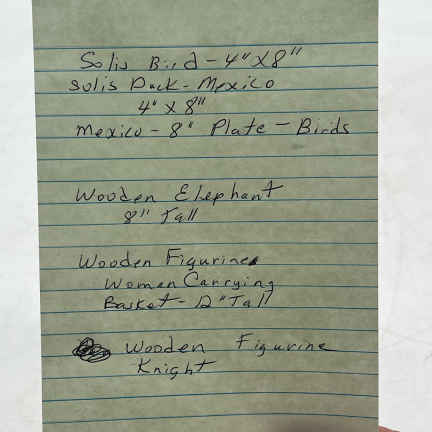 Solis Bird - 4" X 8"
Solis Duck - Mexico
4" X 8"
Mexico - 8" Plate - Birds
Wooden Elephant
8" Tall
Wooden Figurine
Women Carrying
Basket - 12" Tall
Wooden Figurine
Knight